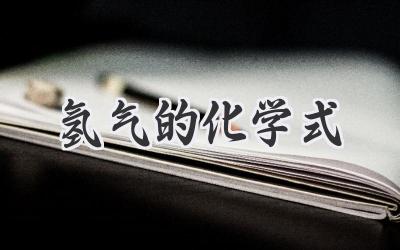 氢气的化学式